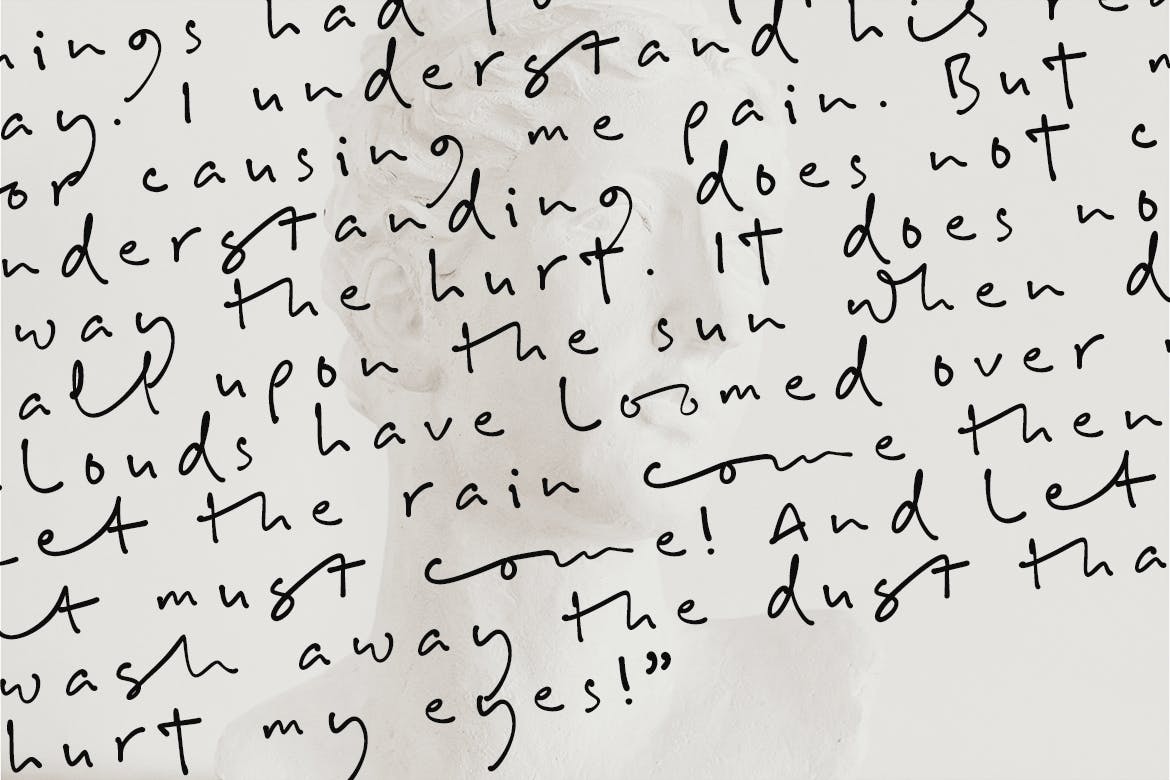 ings had to
ay. I understand his re
or causing me pain. But
nderstanding does not
way the hurt. It does no
all upon the sun when d
louds have loomed over
et the rain come then
t must come! And let
wash away the dust tha
hurt my eyes!”